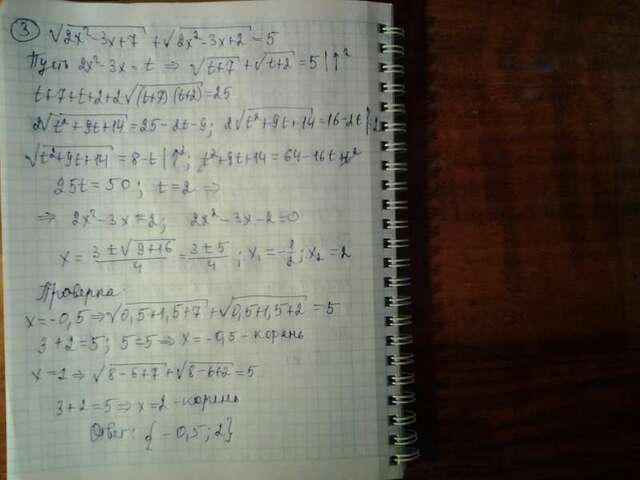 ③ √(2x²-3x+7) + √(2x²-3x+2) = 5
Пусть 2x²-3x = t ⇒ √(t+7) + √(t+2) = 5 |↑²
t+7+t+2+2√((t+7)(t+2)) = 25
2√(t²+9t+14) = 25-2t-9; 2√(t²+9t+14) = 16-2t |:2
√(t²+9t+14) = 8-t |↑²; t²+9t+14 = 64-16t+t²
25t = 50; t = 2 ⇒
⇒ 2x²-3x = 2; 2x²-3x-2=0
x = (3±√(9+16))/4 = (3±5)/4; x₁ = -1/2; x₂ = 2
Проверка:
x = -0,5 ⇒ √(0,5+1,5+7) + √(0,5+1,5+2) = 5
3+2=5; 5=5 ⇒ x = -0,5 - корень
x = 2 ⇒ √(8-6+7) + √(8-6+2) = 5
3+2=5 ⇒ x=2 - корень
Ответ: {-0,5; 2}